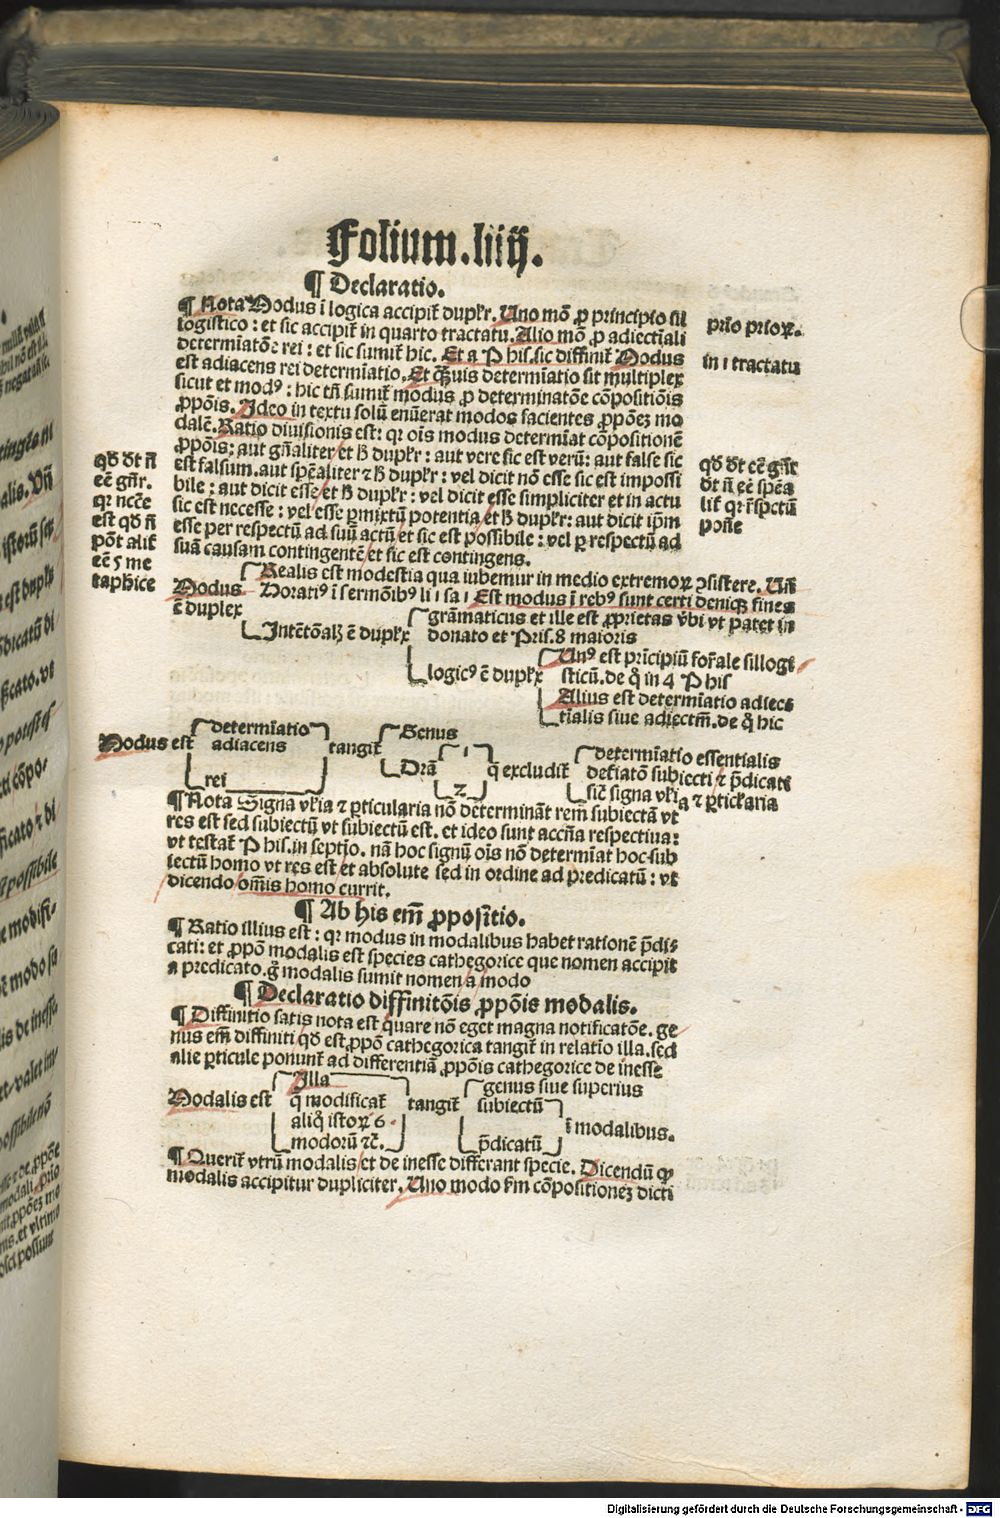 Folium.liiij.
¶ Declaratio.
¶ Nota Modus ī logica accipit᷑ duplr̄. Uno mō ꝓ principio sil
logistico : et sic accipit᷑ in quarto tractatu. Alio mō ꝓ adiectiali
determīatōe rei : et sic sumit᷑ hic. Et a P his. sic diffinit᷑ Modus
est adiacens rei determīatio. Et qᷓuis determīatio sit multiplex
sicut et modꝰ : hic tn̄ sumit᷑ modus ꝓ determinatōne cōpositiōis
ꝓpōis. Ideo in textu solū enūerat modos facientes ꝓpōeꝫ mo
dalē. Ratio diuisionis est: qꝛ oīs modus determīat cōpositionē
ꝓpōis: aut gn̄aliter et hͦ duplr̄: aut vere sic est verū: aut false sic
est falsum. aut spēaliter ⁊ hͦ duplr̄: vel dicit nō esse sic est impossi
bile : aut dicit esse et hͦ duplr̄: vel dicit esse simpliciter et in actu
sic est necesse : vel esse ꝑmixtū potentia et hͦ duplr̄: aut dicit ip̄m
esse per respectū ad suū actū et sic est possibile : vel ꝑ respectū ad
suā causam contingentē et sic est contingens.
prīo prioꝝ.
in 1 tractatu
qd̄ dt n̄
eē gn̄r.
qꝛ neccē
est qd̄ n̄
pōt alit᷑
eē 5 me
taph̄ice
qd̄ dt eē gn̄r
dt n̄ eē spēa
lit᷑ qꝛ r̄spctū
pōne
Modus
ē duplex
Realis est modestia qua iubemur in medio extremoꝝ ꝯsistere. Un̄
Horatiꝰ ī sermōibꝰ li 1 sa 1 Est modus ī rebꝰ sunt certi deniqꝫ fines
Intētōalꝫ ē duplx
grāmaticus et ille est ꝓprietas v̄bi vt patet in
donato et Pris. 8 maioris
logicꝰ ē duplx
Unꝰ est prīcipiū for̄ale sillogi
sticū. de q̊ in 4 P his
Alius est determīatio adiect
tīalis siue adiectm̄. de q̊ hic
Modus est
determīatio
adiacens
rei
tangit᷑
Genus
Drām
1
2
q̄ excludit᷑
determīatio essentialis
defīatōm subiecti ⁊ p̄dicati
sic̄ signa vl̄ia ⁊ ꝑticl̄aria
¶ Nota Signa vl̄ia ⁊ ꝑticularia nō determināt rem̄ subiectā vt
res est sed subiectū vt subiectū est. et ideo sunt accn̄a respectiua:
vt testat᷑ P his. in septīo. nā hoc signū oīs nō determīat hoc sub
iectū homo vt res est et absolute sed in ordine ad predicatū : vt
dicendo om̄is homo currit.
¶ Ab his em̄ ꝓposītio.
¶ Ratio illius est : qꝛ modus in modalibus habet rationē p̄di-
cati: et ꝓpō modalis est species cathegorice que nomen accipit
a predicato. gͦ modalis sumit nomen a modo
¶ Declaratio diffinitōis ꝓpōis modalis.
¶ Diffinitio satis nota est quare nō eget magna notificatōe. ge
nus em̄ diffiniti qd̄ est ꝓpō cathegorica tangit᷑ in relatio illa. sed
alie ꝑticule ponunt᷑ ad differentiā ꝓpōis cathegorice de inesse
Modalis est
Illa
q̄ modificat᷑
aliq̊ istoꝝ 6
modorū ⁊c̄.
tangit᷑
genus siue superius
subiectū
p̄dicatū
ī modalibus.
¶ Querit᷑ vtrū modalis et de inesse differant specie. Dicendū ꝙ
modalis accipitur dupliciter. Uno modo fm̄ cōpositioneꝫ dicti
Digitalisierung gefördert durch die Deutsche Forschungsgemeinschaft - DFG